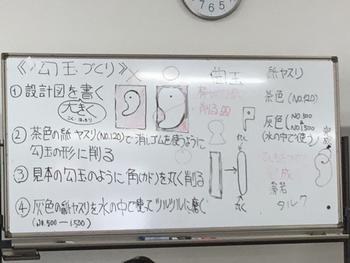 《勾玉づくり》
①設計図を書く
大きく
②茶色の紙ヤスリ(NO.120)で消しゴムを使うように
勾玉の形に削る
③見本の勾玉のように角(カド)を丸く削る
④灰色の紙ヤスリを水の中で使ってツルツルに磨く
(NO.500〜1500)
削る
丸く
丸く
紙ヤスリ
茶色(NO.120)
灰色(NO.500
NO.1500)
(水の中で使う)
完成
タルク